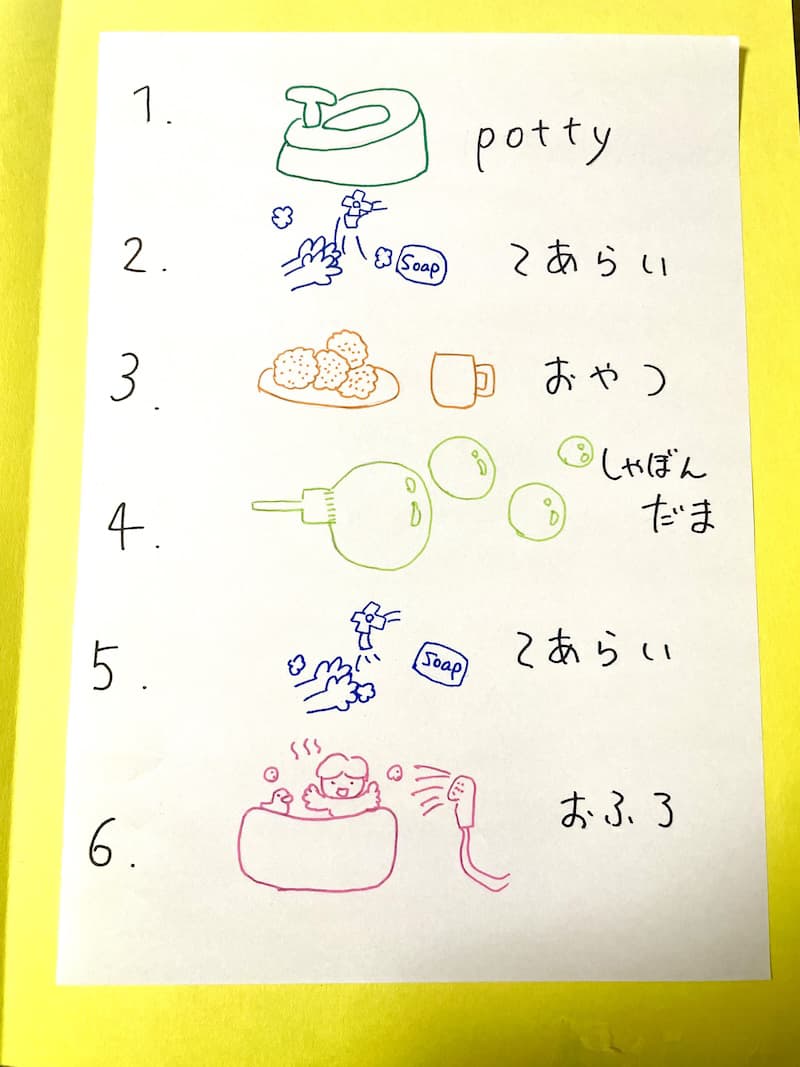 1. potty
2. Soap てあらい
3. おやつ
4. しゃぼん
だま
5. Soap てあらい
6. おふろ